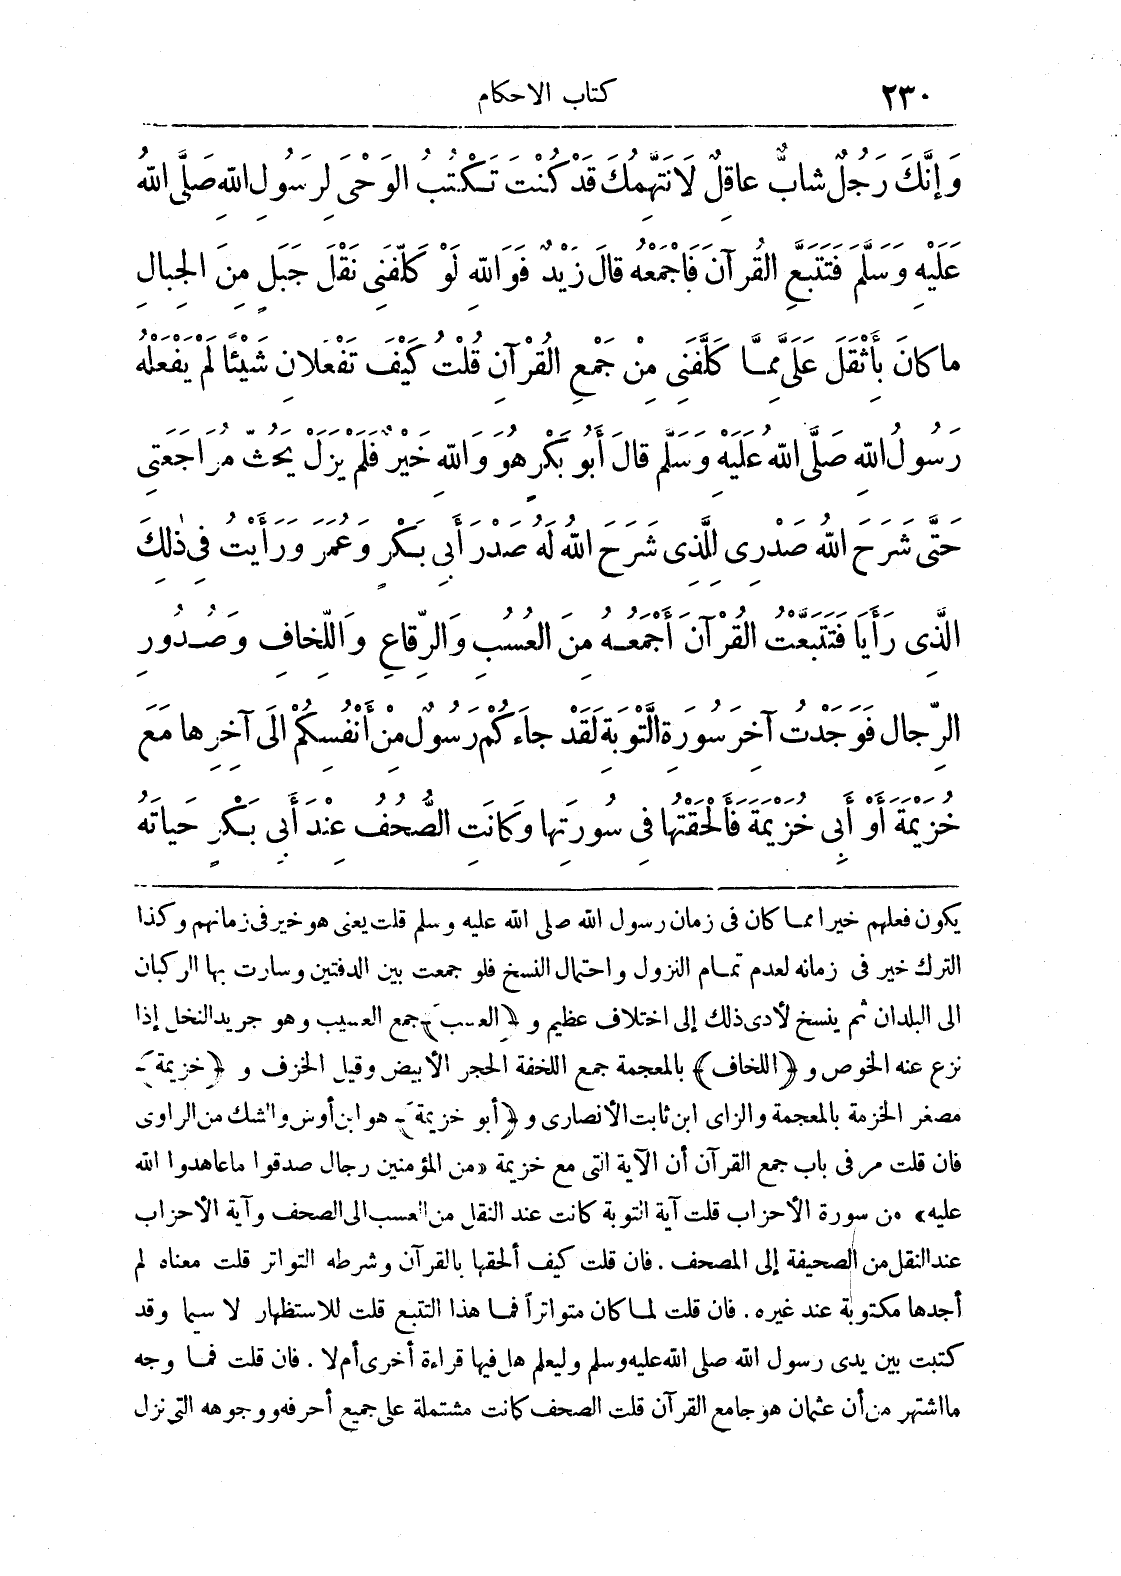 ٢٣٠ كتاب الاحكام
وَإِنَّكَ رَجُلٌ شابٌّ عاقِلٌ لَا نَتَّهِمُكَ قَدْ كُنْتَ تَكْتُبُ الوَحْىَ لِرَسُولِ اللهِ صَلَّى اللهُ
عَلَيْهِ وَسَلَّمَ فَتَتَبَّعِ القُرآنَ فَاجْمَعْهُ قالَ زَيْدٌ فَوَاللهِ لَوْ كَلَّفَنِى نَقْلَ جَبَلٍ مِنَ الجِبالِ
ما كانَ بِأَثْقَلَ عَلَىَّ مِمَّا كَلَّفَنِى مِنْ جَمْعِ القُرْآنِ قُلْتُ كَيْفَ تَفْعَلانِ شَيْئًا لَمْ يَفْعَلْهُ
رَسُولُ اللهِ صَلَّى اللهُ عَلَيْهِ وَسَلَّمَ قالَ أَبُو بَكْرٍ هُوَ وَاللهِ خَيْرٌ فَلَمْ يَزَلْ يَحُثُّ مُرَاجَعَتِى
حَتَّى شَرَحَ اللهُ صَدْرِى لِلَّذِى شَرَحَ اللهُ لَهُ صَدْرَ أَبِى بَكْرٍ وَعُمَرَ وَرَأَيْتُ فِى ذٰلِكَ
الَّذِى رَأَيَا فَتَتَبَّعْتُ القُرْآنَ أَجْمَعُهُ مِنَ العُسُبِ وَالرِّقاعِ وَاللِّخافِ وَصُدُورِ
الرِّجالِ فَوَجَدْتُ آخِرَ سُورَةِ التَّوْبَةِ لَقَدْ جاءَكُمْ رَسُولٌ مِنْ أَنْفُسِكُمْ الَى آخِرِها مَعَ
خُزَيْمَةَ أَوْ أَبِى خُزَيْمَةَ فَأَلْحَقْتُها فِى سُورَتِها وَكانَتِ الصُّحُفُ عِنْدَ أَبِى بَكْرٍ حَياتَهُ
يكون فعلهم خيرا مما كان فى زمان رسول الله صلى الله عليه وسلم قلت يعنى هو خير فى زمانهم وكذا
الترك خير فى زمانه لعدم تمام النزول واحتمال النسخ فلو جمعت بين الدفتين وسارت بها الركبان
الى البلدان ثم ينسخ لأدى ذلك إلى اختلاف عظيم و ﴿العسب﴾ جمع العسيب وهو جريد النخل إذا
نزع عنه الخوص و ﴿اللخاف﴾ بالمعجمة جمع اللخفة الحجر الأبيض وقيل الخزف و ﴿خزيمة﴾
مصغر الخزمة بالمعجمة والزاى ابن ثابت الأنصارى و ﴿أبو خزيمة﴾ هو ابن أوس والشك من الراوى
فان قلت مر فى باب جمع القرآن أن الآية التى مع خزيمة «من المؤمنين رجال صدقوا ما عاهدوا الله
عليه» من سورة الأحزاب قلت آية التوبة كانت عند النقل من العسب الى الصحف وآية الأحزاب
عند النقل من الصحيفة إلى المصحف . فان قلت كيف ألحقها بالقرآن وشرطه التواتر قلت معناه لم
أجدها مكتوبة عند غيره . فان قلت لما كان متواتراً فما هذا التتبع قلت للاستظهار لا سيما وقد
كتبت بين يدى رسول الله صلى الله عليه وسلم وليعلم هل فيها قراءة أخرى أم لا . فان قلت فما وجه
ما اشتهر من أن عثمان هو جامع القرآن قلت الصحف كانت مشتملة على جميع أحرفه ووجوهه التى نزل